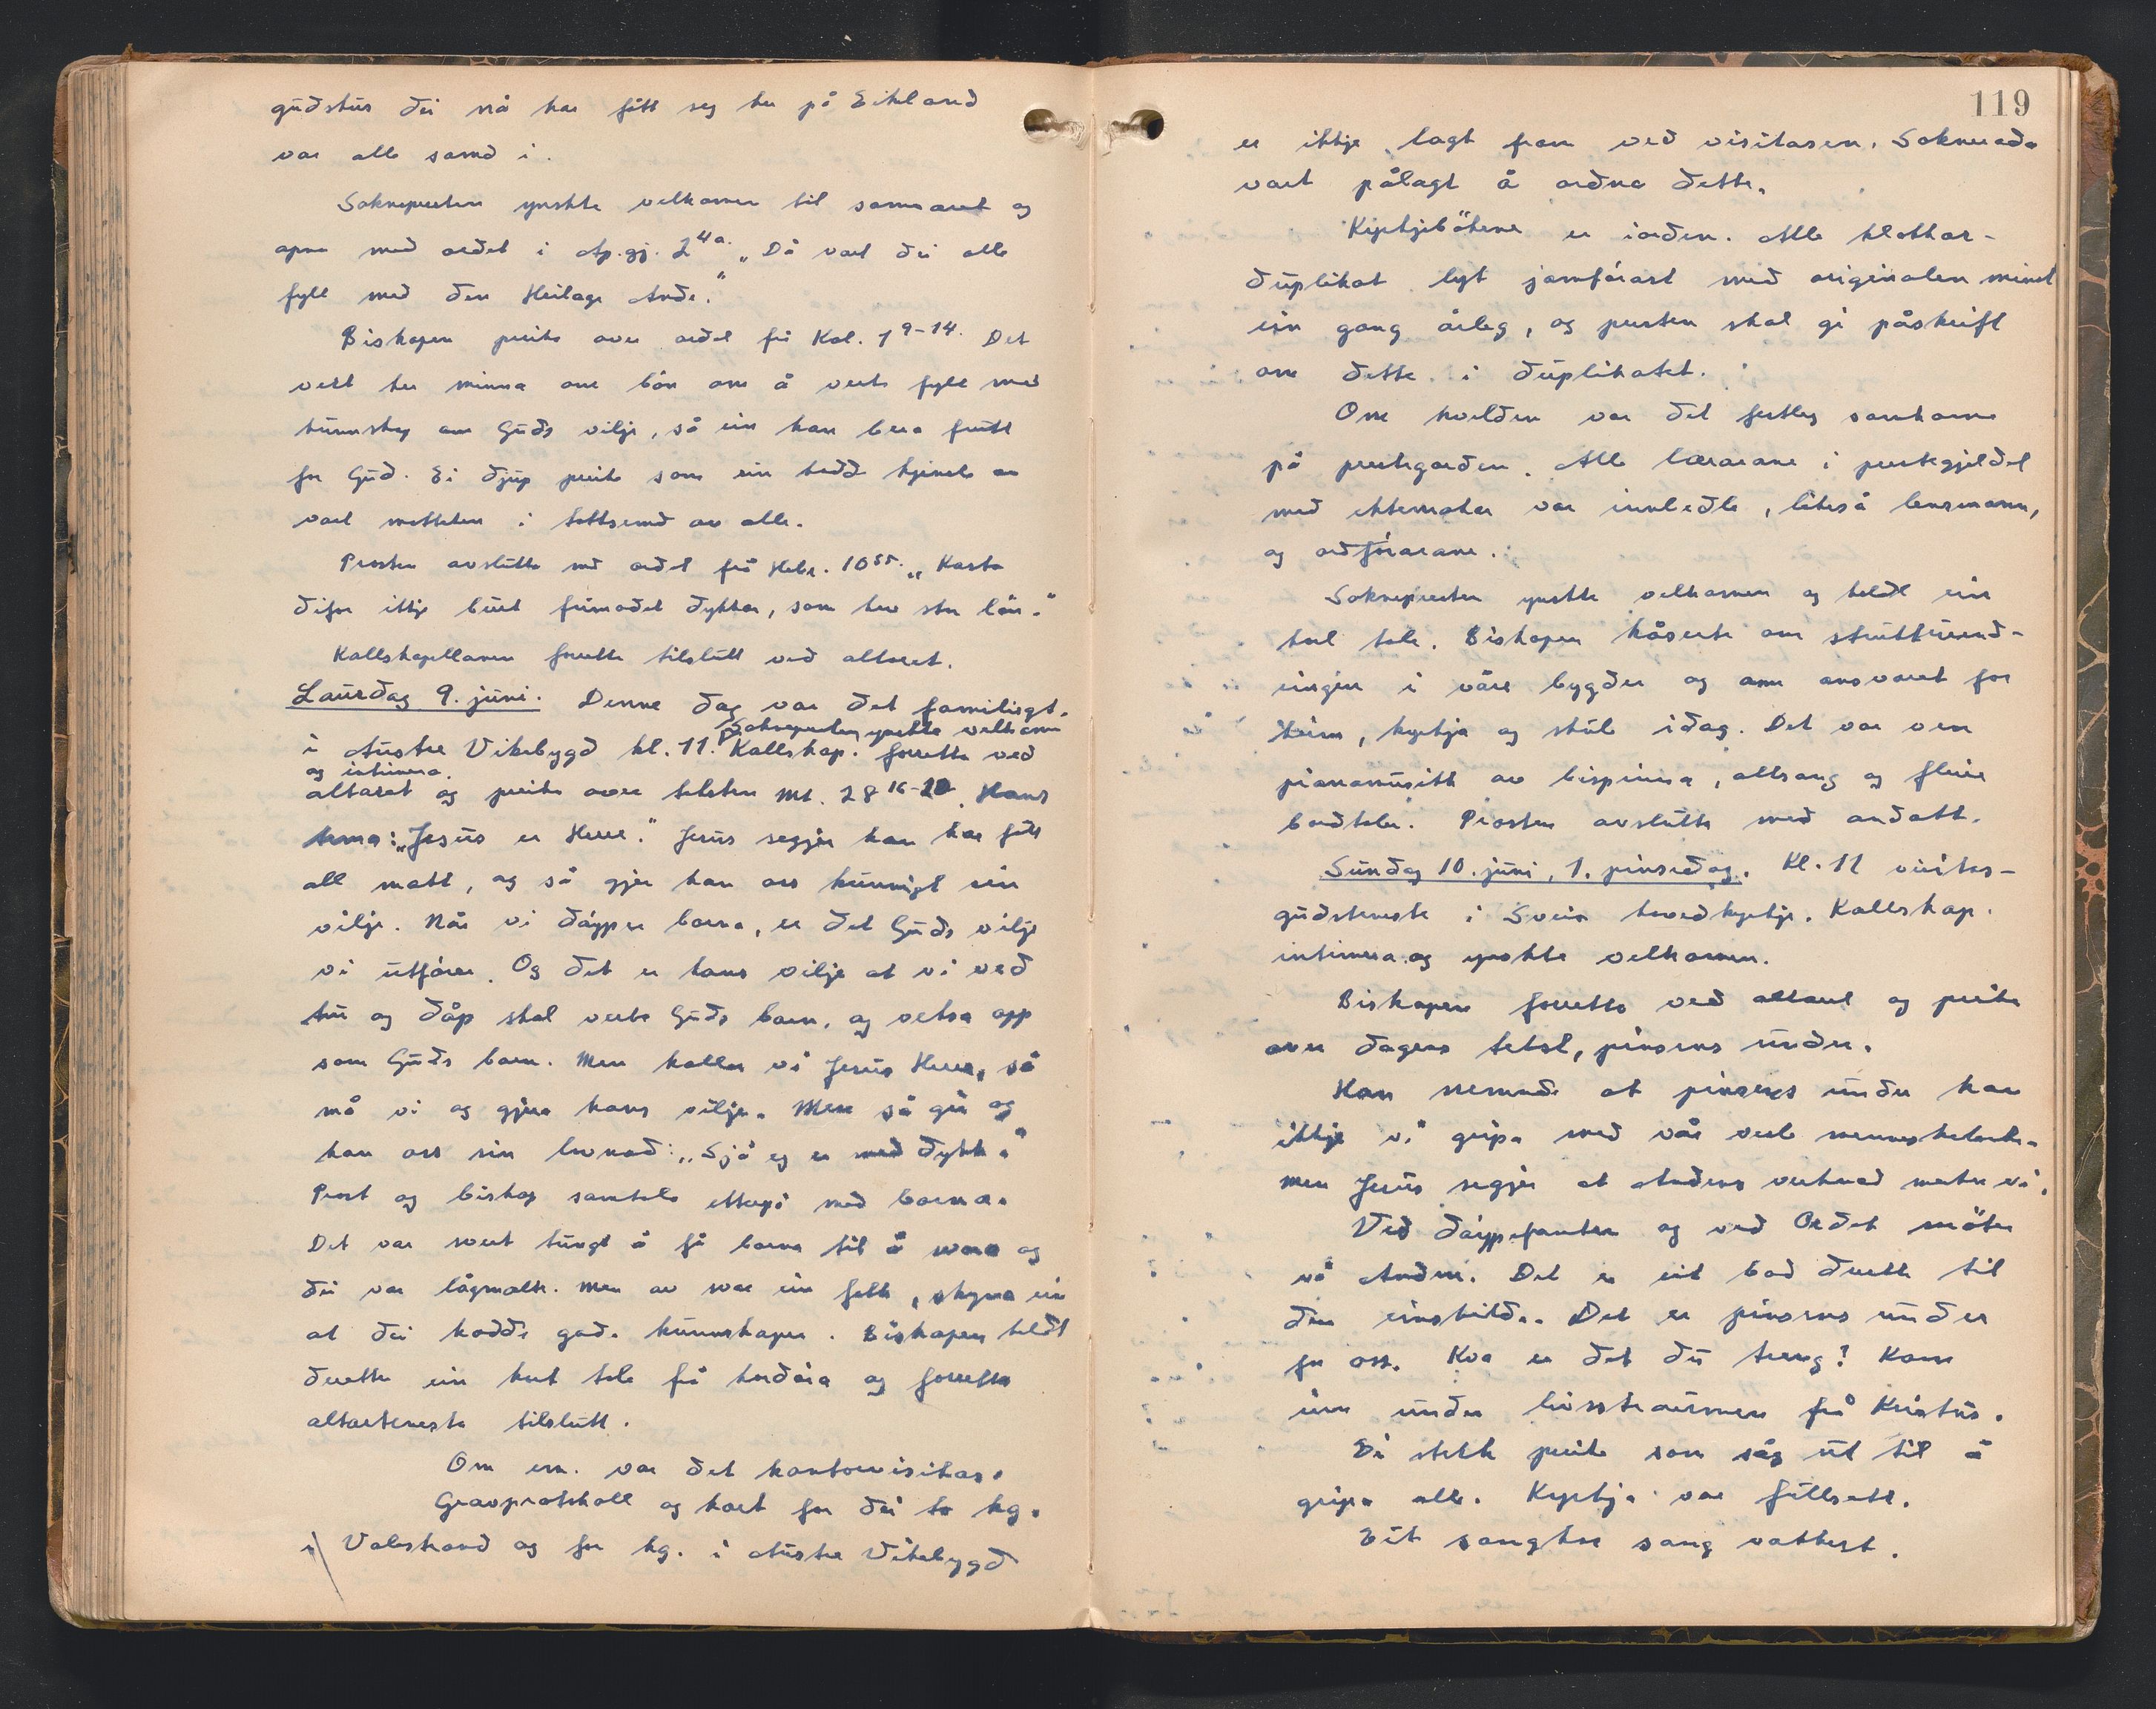 gudshus dei nå har fått seg her på Eikeland
var alle samd i.
Soknepresten ynskte velkomen til samværet og
apna med ordet i Ap.gj. 2 4a. "Då vart dei alle
fyllt med den Heilage Ande."
Biskopen preika over ordet frå Kol. 1 9-14. Det
vert her minna om bøn om å verta fyllt med
kunnskap om Guds vilje, så ein kan bera frukt
for Gud. Ei djup preike som ein hadde kjensle av
vart motteken i takksemd av alle.
Prosten avslutta med ordet frå Hebr. 10 35. "Kasta
difor ikkje burt frimodet dykkar, som hev stor løn."
Kallskapellanen forretta tilslutt ved altaret.
Laurdag 9. juni. Denne dag var det familiegt.
i Austre Vikebygd kl. 11. Soknepresten ynskte velkomen
og intimera. Kallskap. forretta ved
altaret og preika over teksten Mt. 28 16-20. Hans
tema: "Jesus er Herre." Jesus segjer han har fått
all makt, og så gjer han oss kunnigt sin
vilje. Når vi døyper borna, er det Guds vilje
vi utfører. Og det er hans vilje at vi ved
tru og dåp skal verta Guds barn, og veksa opp
som Guds barn. Men kallar vi Jesus Herre, så
må vi og gjera hans vilje. Men så gir og
han oss sin lovnad: "Sjå eg er med dykk."
Prost og biskop samtala etterpå med borna.
Det var svært tungt å få borna til å svara og
dei var lågmælte. Men av svar ein fekk, skyna ein
at dei hadde gode kunnskapar. Biskopen heldt
deretter ein kort tale frå kordøra og forretta
altarteneste tilslutt.
Om em. var det kontorvisitas.
Gravprotokoll og kart for dei to kg.
i Valestrand og for kg. i Austre Vikebygd
119
er ikkje lagt fram ved visitasen. Sokneråda
vart pålagt å ordna dette.
Kyrkjebökene er iorden. Alle klokkar-
duplikat lyt jamførast med originalen minst
ein gang årleg, og presten skal gi påskrift
om dette i duplikatet.
Om kvelden var det festleg samkome
på prestegarden. Alle lærarane i prestegjeldet
med ektemakar var innbedte, likeså lensmann,
og ordførarane.
Soknepresten ynskte velkomen og heldt ein
tale. Biskopen kåserte om strukturend-
ringen i våre bygder og om ansvaret for
heim, kyrkja og skule idag. Det var ven
pianomusikk av bispinna, allsang og fleire
bordtaler. Prosten avslutta med andakt.
Sundag 10. juni, 1. pinsedag. Kl. 11 visitas-
gudsteneste i Sveio hovedkyrkje. Kallskap.
intimera og ynskte velkomen.
Biskopen forretta ved altaret og preika
over dagens tekst, pinsens under.
Han nemnde at pinsens under kan
ikkje vi gripa med vår vesle mennesketanke.
men Jesus segjer at Andens verknad merker vi.
Ved døypefonten og ved Ordet möter
vi Anden. Det er eit bad til
den einskilde. Det er pinsens under
for oss. Kva er det du treng? Kom
inn under livsstraumen frå Kristus.
Ei sterk preike som såg ut til å
gripa alle. Kyrkja var fullsett.
Eit sangkor sang vakkert.